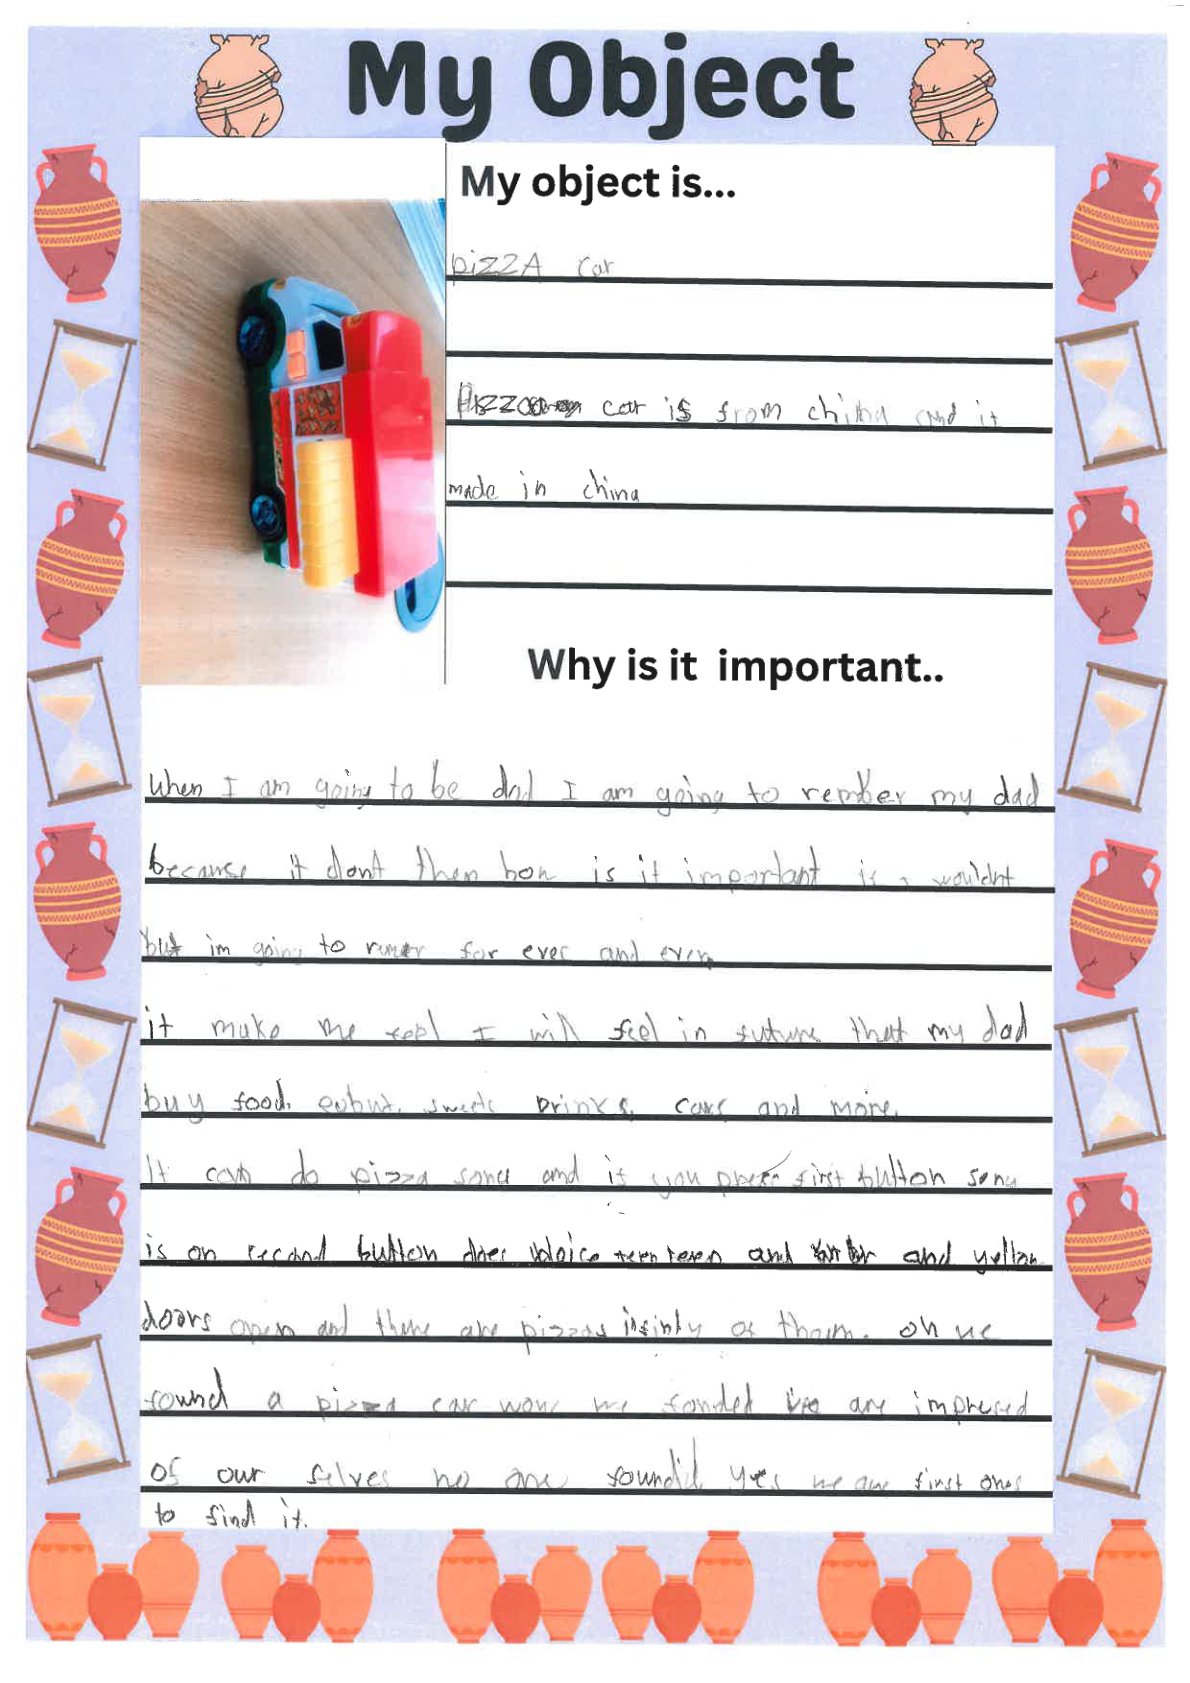 My Object
My object is...
pizzA car
car is from china and it
made in china
Why is it important..
When I am going to be dad I am going to rember my dad
because it dont then how is it important is a wouldnt
but im going to for ever and ever
it make me feel I will feel in future that my dad
buy food. sweets Drinks, cars and more.
It can do pizza song and if you press first button song
is on second button does and and yellow
doors open and there are pizzas of tham. oh we
found a pizza car wow we founded we are impresed
of our selves no one yes we are first ones
to find it.